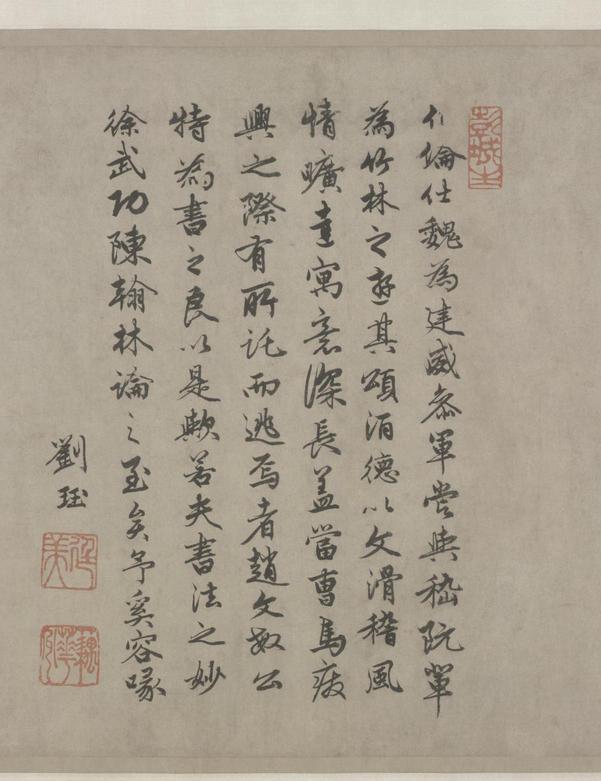 伯倫仕魏為建威參軍嘗與嵇阮輩
為竹林之遊其頌酒德以文滑稽風
情曠達寓意深長蓋當曹馬廢
興之際有所託而逃焉者趙文敏公
特為書之良以是歟若夫書法之妙
徐武功陳翰林論之至矣予奚容喙
劉珏
廷美